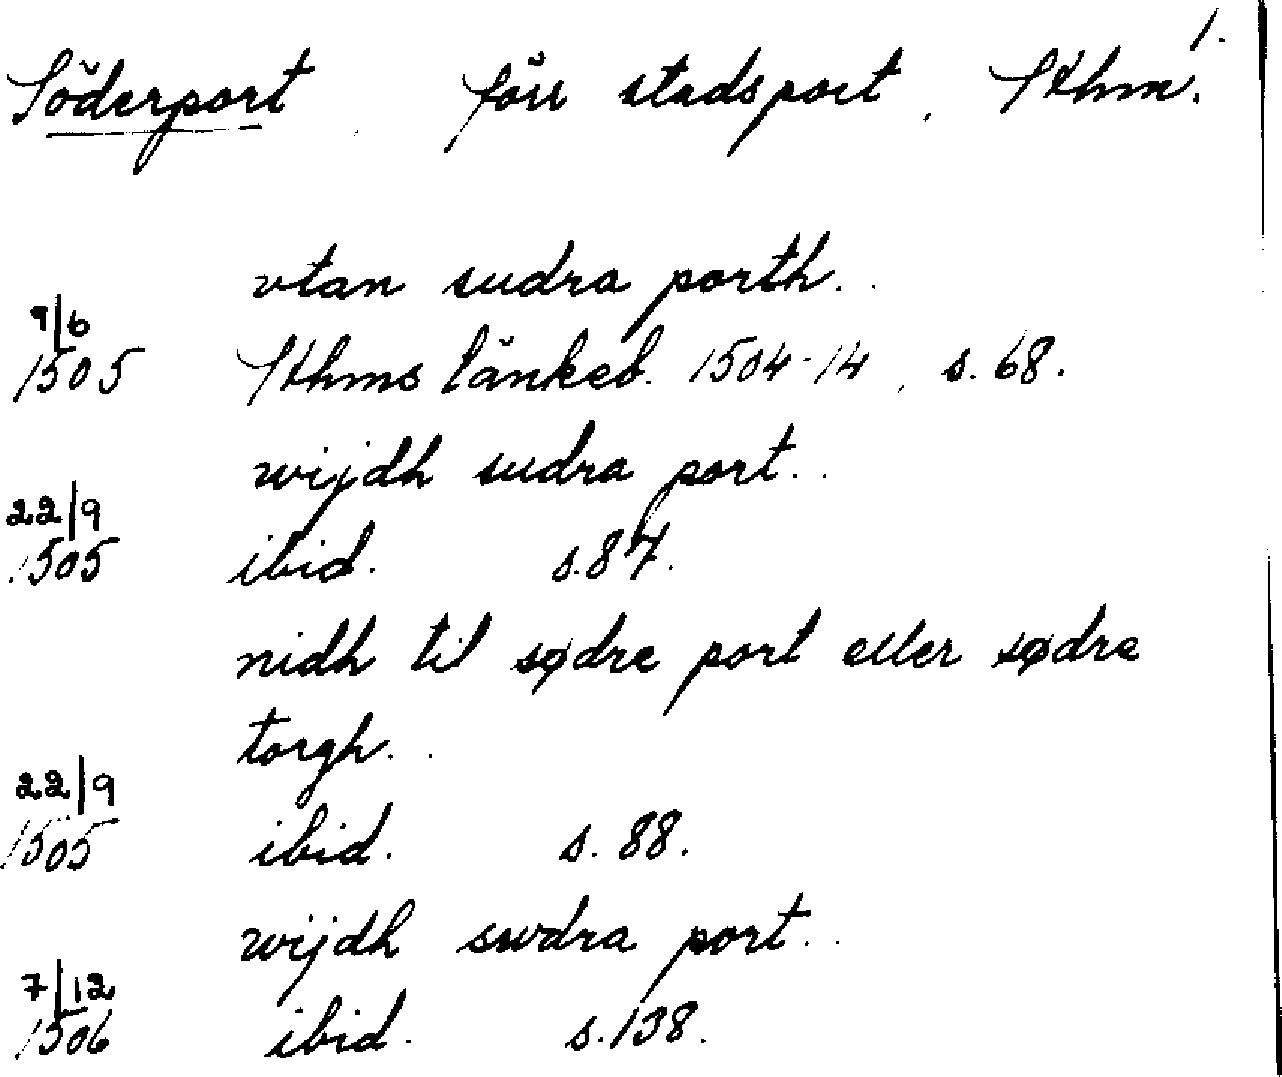 1.
Söderport förr stadsport, Sthm.
vtan sudra porth..
9/6
1505 Sthms tänkeb. 1504-14, s. 68.
wijdh sudra port..
22/9
1505 ibid. s. 87.
nidh til sødre port eller sødre
torgh..
22/9
1505 ibid. s. 88.
wijdh swdra port..
7/12
1506 ibid. s. 138.